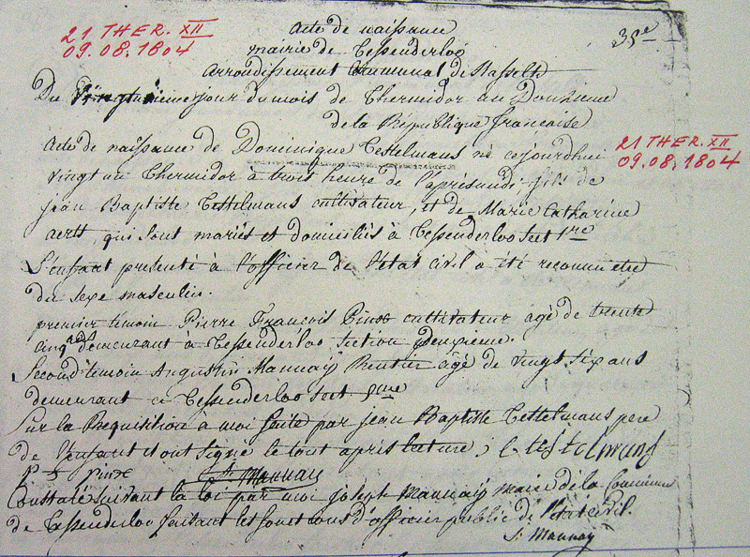 21 THER. XII
09.08.1804
Acte de naissance
35e
mairie de Tessenderloo
Arrondissement Communal de Hasselt
Du Vingtunieme jour du mois de Thermidor an Douzieme
de la République française
Acte de naissance de Dominique Testelmans né cejourdhui
21 THER. XII
09.08.1804
vingt un Thermidor à trois heure de l'aprèsmidi fils de
Jean Baptiste Testelmans cultivateur, et de Marie Catharine
aerts, qui sont mariés et domiciliés à Tessenderloo sect 1re
L'enfant presenté à l'officier de l'etat civil a été reconnu être
du sexe masculin.
premier temoin Pierre François cultivateur agé de trente
cinq demeurant à Tessenderloo section deuxieme.
Second temoin Augustin Mannaÿ Rentier agé de vingt six ans
demeurant a Tessenderloo sect
Sur la Requisition à moi faite par jean Baptiste Testelmans pere
de l'enfant et ont signé le tout apris lecture,
Mannaÿ
Constaté suivant la loi par moi joseph Mannaÿ maire de la Commune
de Tessenderloo faisant les fonctions d'officier public de l'état civil.
J. Mannaÿ